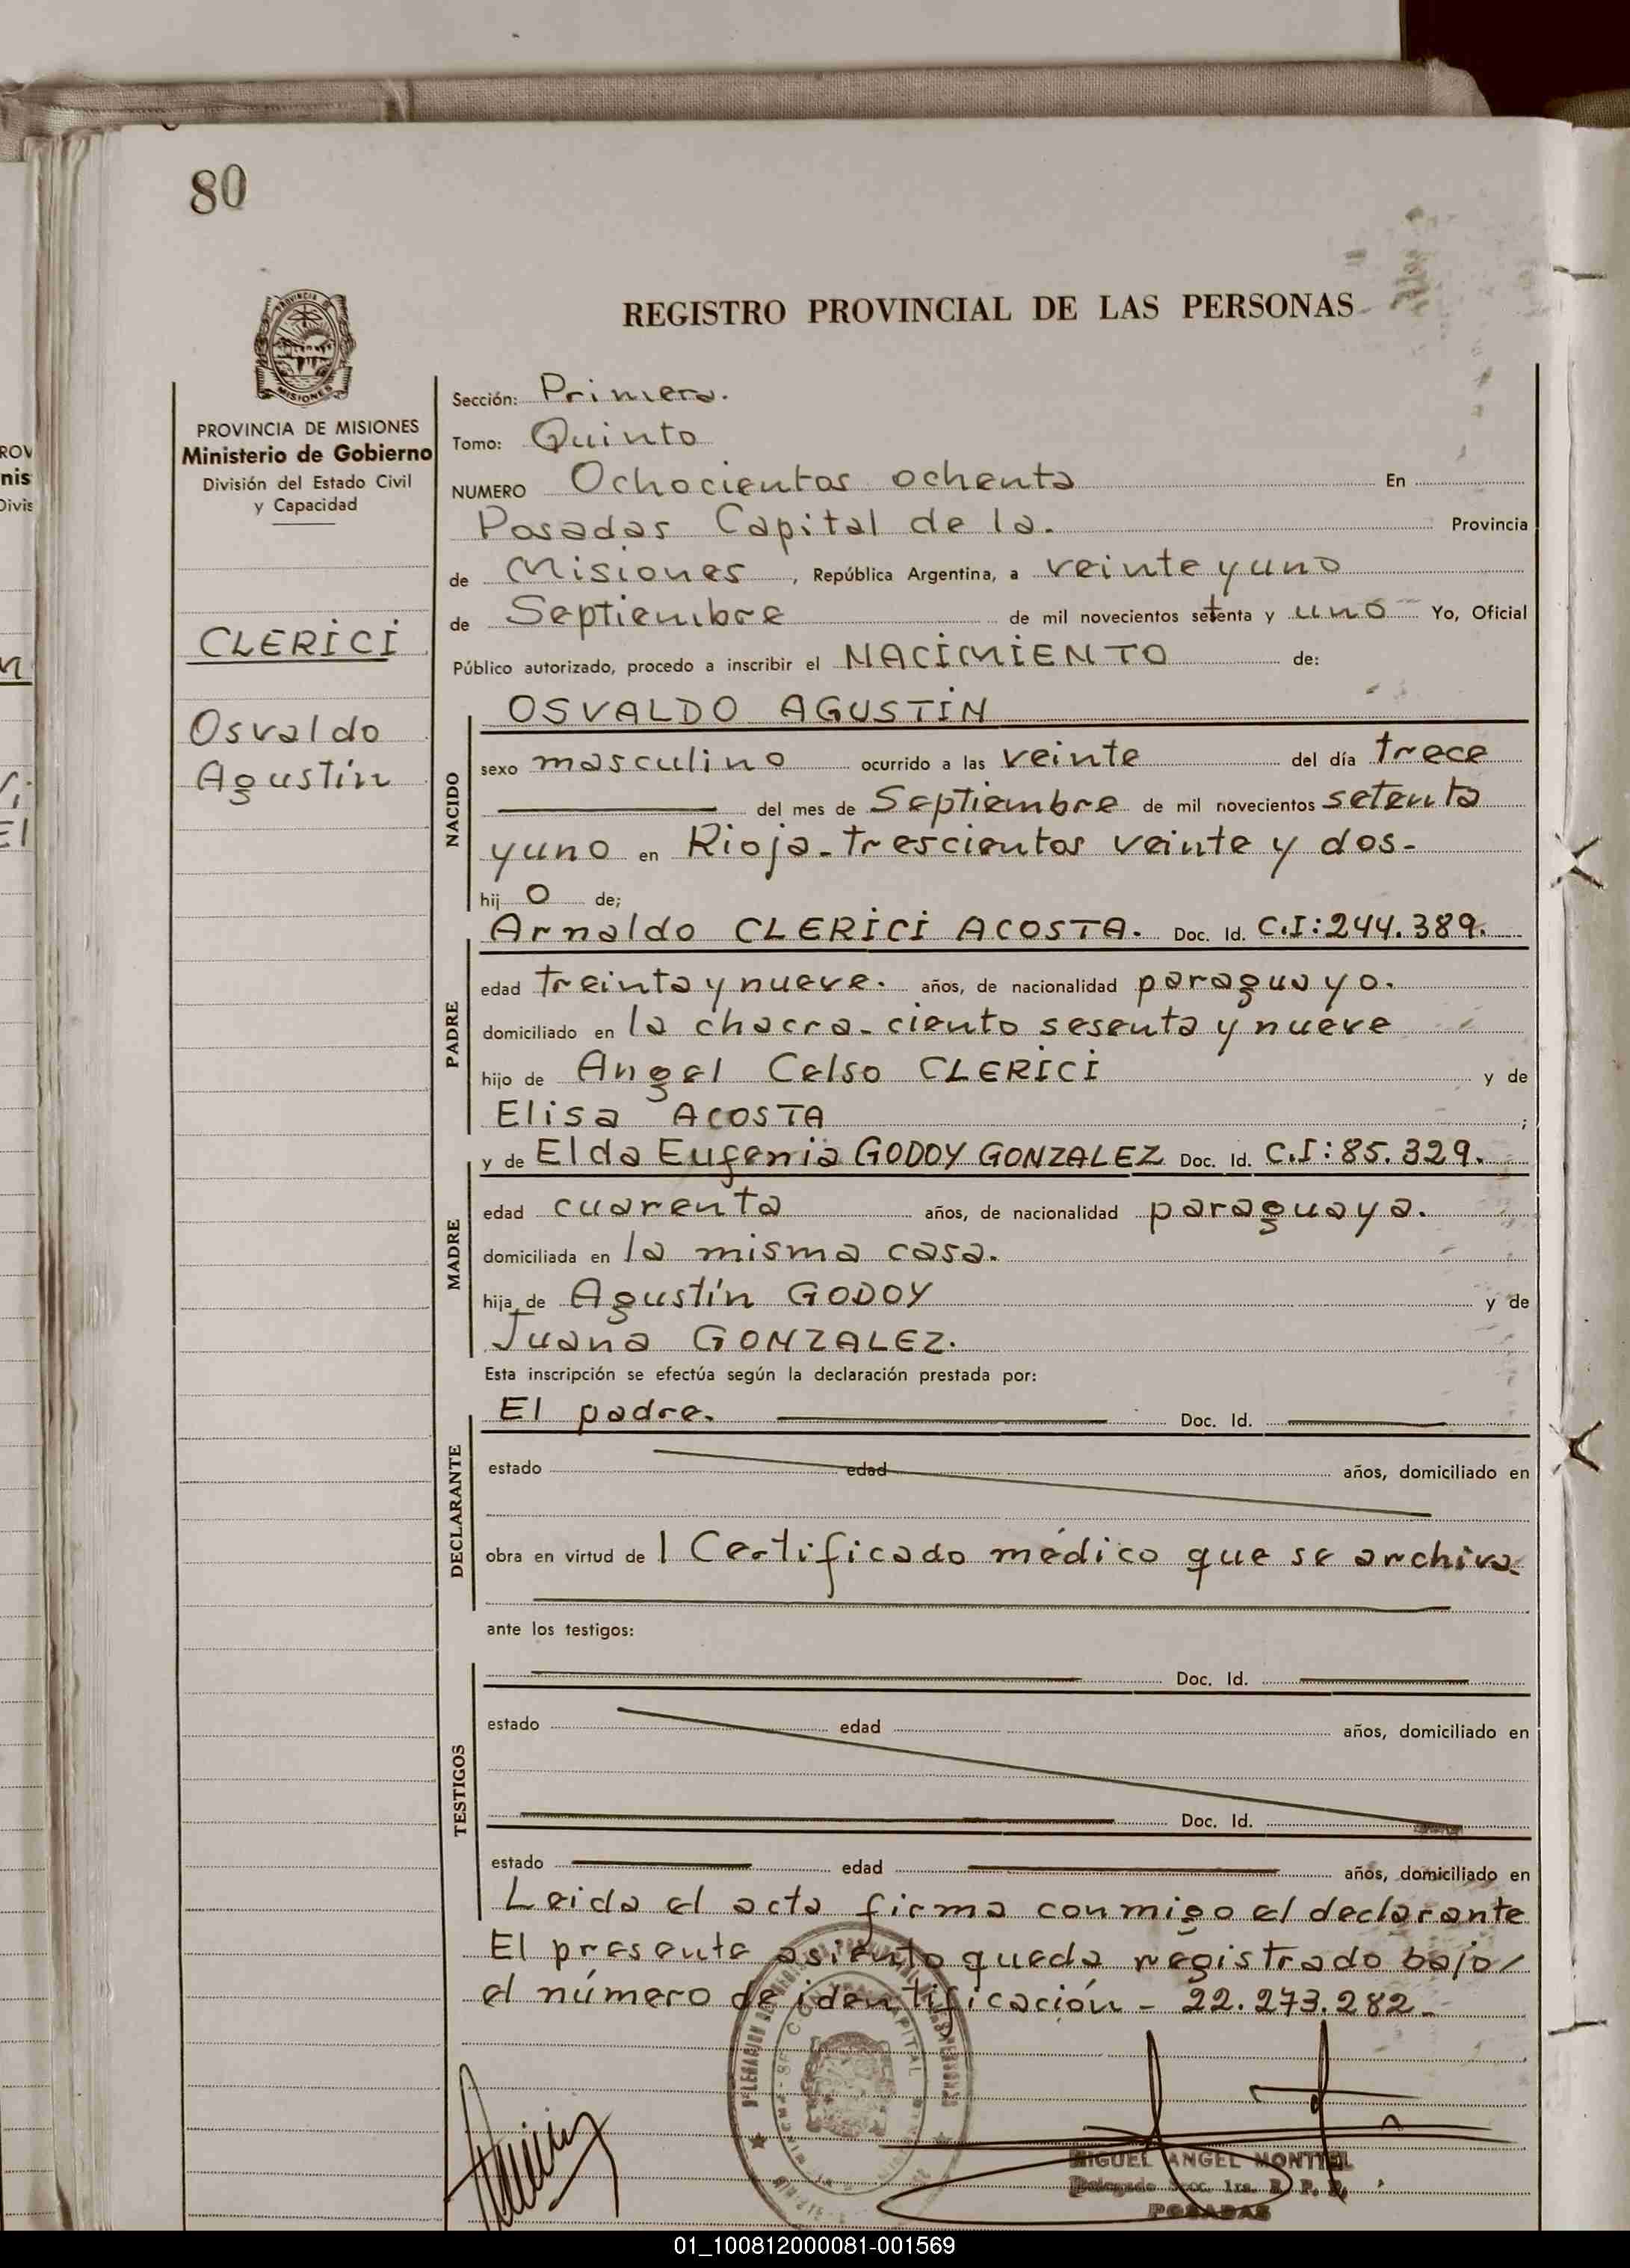 80
REGISTRO PROVINCIAL DE LAS PERSONAS
PROVINCIA DE MISIONES
Ministerio de Gobierno
División del Estado Civil
y Capacidad
CLERICI
Osvaldo
Agustín
Sección: Primera.
Tomo: Quinto
NUMERO Ochocientos ochenta En
Posadas Capital de la. Provincia
de Misiones, República Argentina, a veinte y uno
de Septiembre de mil novecientos setenta y uno Yo, Oficial
Público autorizado, procedo a inscribir el NACIMIENTO de:
NACIDO
OSVALDO AGUSTIN
sexo masculino ocurrido a las veinte del día trece
del mes de Septiembre de mil novecientos setenta
y uno en Rioja-trescientos veinte y dos-
hij o de;
PADRE
Arnaldo CLERICI ACOSTA. Doc. Id. C.I:244.389.
edad treinta y nueve. años, de nacionalidad paraguayo.
domiciliado en la chacra-ciento sesenta y nueve
hijo de Angel Celso CLERICI y de
Elisa ACOSTA ;
MADRE
y de Elda Eugenia GODOY GONZALEZ Doc. Id. C.I:85.329.
edad cuarenta años, de nacionalidad paraguaya.
domiciliada en la misma casa.
hija de Agustín GODOY y de
Juana GONZALEZ.
Esta inscripción se efectúa según la declaración prestada por:
DECLARANTE
El padre. Doc. Id.
estado edad años, domiciliado en
obra en virtud de 1 Certificado médico que se archiva.
ante los testigos:
TESTIGOS
Doc. Id.
estado edad años, domiciliado en
Doc. Id.
estado edad años, domiciliado en
Leida el acta firma conmigo el declarante
El presente asiento queda registrado bajo/
el número de identificación - 22.273.282-
MIGUEL ANGEL MONTIEL
Delegado Secc. 1ra. R. P. P.
POSADAS
01_100812000081-001569